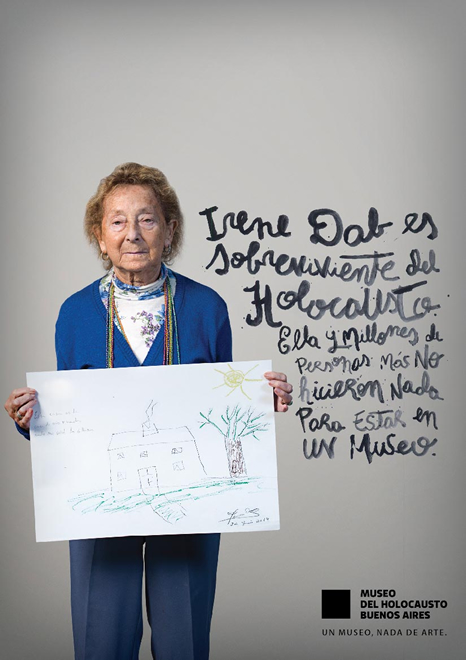 Irene Dab es
sobreviviente del
Holocausto.
Ella y Millones de
Personas Más No
hicieron Nada
Para Estar en
UN Museo.
MUSEO
DEL HOLOCAUSTO
BUENOS AIRES
UN MUSEO, NADA DE ARTE.